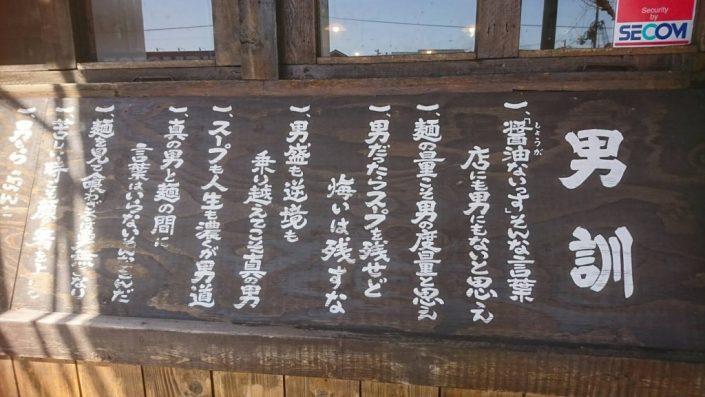 男訓
一、「醤油ないっす」そんな言葉
しょうが
店にも男にもないと思え
一、麺の量こそ男の度量と思え
一、男だったらスープを残せど
悔いは残すな
一、男盛も逆境も
乗り越えてこそ真の男
一、スープも人生も濃くが男道
一、真の男と麺の間に
言葉はいらない
一、麺を見て喰わざるは
一、苦しい時こそ
一、男なら
Security
by
SECOM